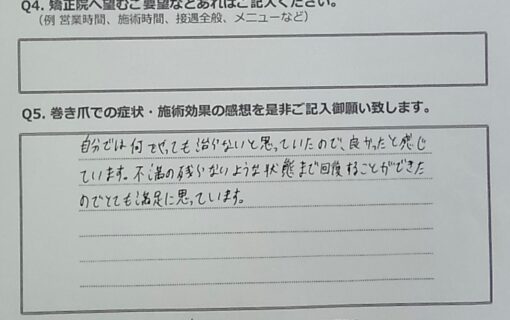 Q4. 矯正院へ望むご要望などあればご記入ください。
（例 営業時間、施術時間、接遇全般、メニューなど）
Q5. 巻き爪での症状・施術効果の感想を是非ご記入御願い致します。
自分では何でやっても治らないと思っていたので、良かったと感じ
ています。不満の残らないような状態まで回復することができた
のでとても満足に思っています。